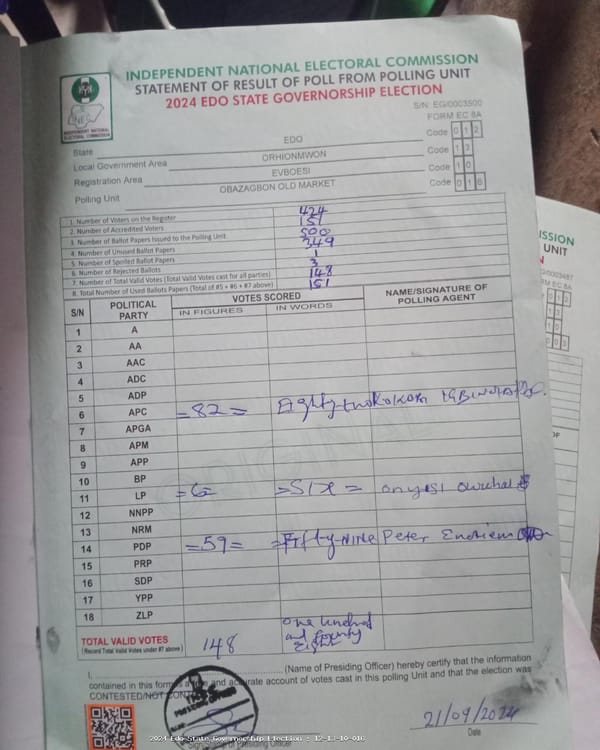 INDEPENDENT NATIONAL ELECTORAL COMMISSION
STATEMENT OF RESULT OF POLL FROM POLLING UNIT
2024 EDO STATE GOVERNORSHIP ELECTION
S/N: EG/0003500
FORM EC 8A
State EDO Code 012
Local Government Area ORHIONMWON Code 13
Registration Area EVBOESI Code 10
Polling Unit OBAZAGBON OLD MARKET Code 016
1. Number of Voters on the Register 424
2. Number of Accredited Voters 151
3. Number of Ballot Papers Issued to the Polling Unit 500
4. Number of Unused Ballot Papers 349
5. Number of Spoiled Ballot Papers 1
6. Number of Rejected Ballots 3
7. Number of Total Valid Votes (Total Valid Votes cast for all parties) 148
8. Total Number of Used Ballots Papers (Total of #5 + #6 + #7 above) 151
S/N POLITICAL PARTY VOTES SCORED NAME/SIGNATURE OF POLLING AGENT
IN FIGURES IN WORDS
1 A
2 AA
3 AAC
4 ADC
5 ADP
6 APC =82= Eighty-two
7 APGA
8 APM
9 APP
10 BP
11 LP =6= =SIX=
12 NNPP
13 NRM
14 PDP =59= =Fifty-Nine Peter
15 PRP
16 SDP
17 YPP
18 ZLP
TOTAL VALID VOTES 148 one hundred and fourty Eight
(Record Total Valid Votes under #7 above)
I, (Name of Presiding Officer) hereby certify that the information
contained in this form is a and accurate account of votes cast in this polling Unit and that the election was
CONTESTED/NOT CONTESTED
21/09/2024
Date
Signature of Presiding Officer
2024 Edo State Governorship Election : 12-13-10-016